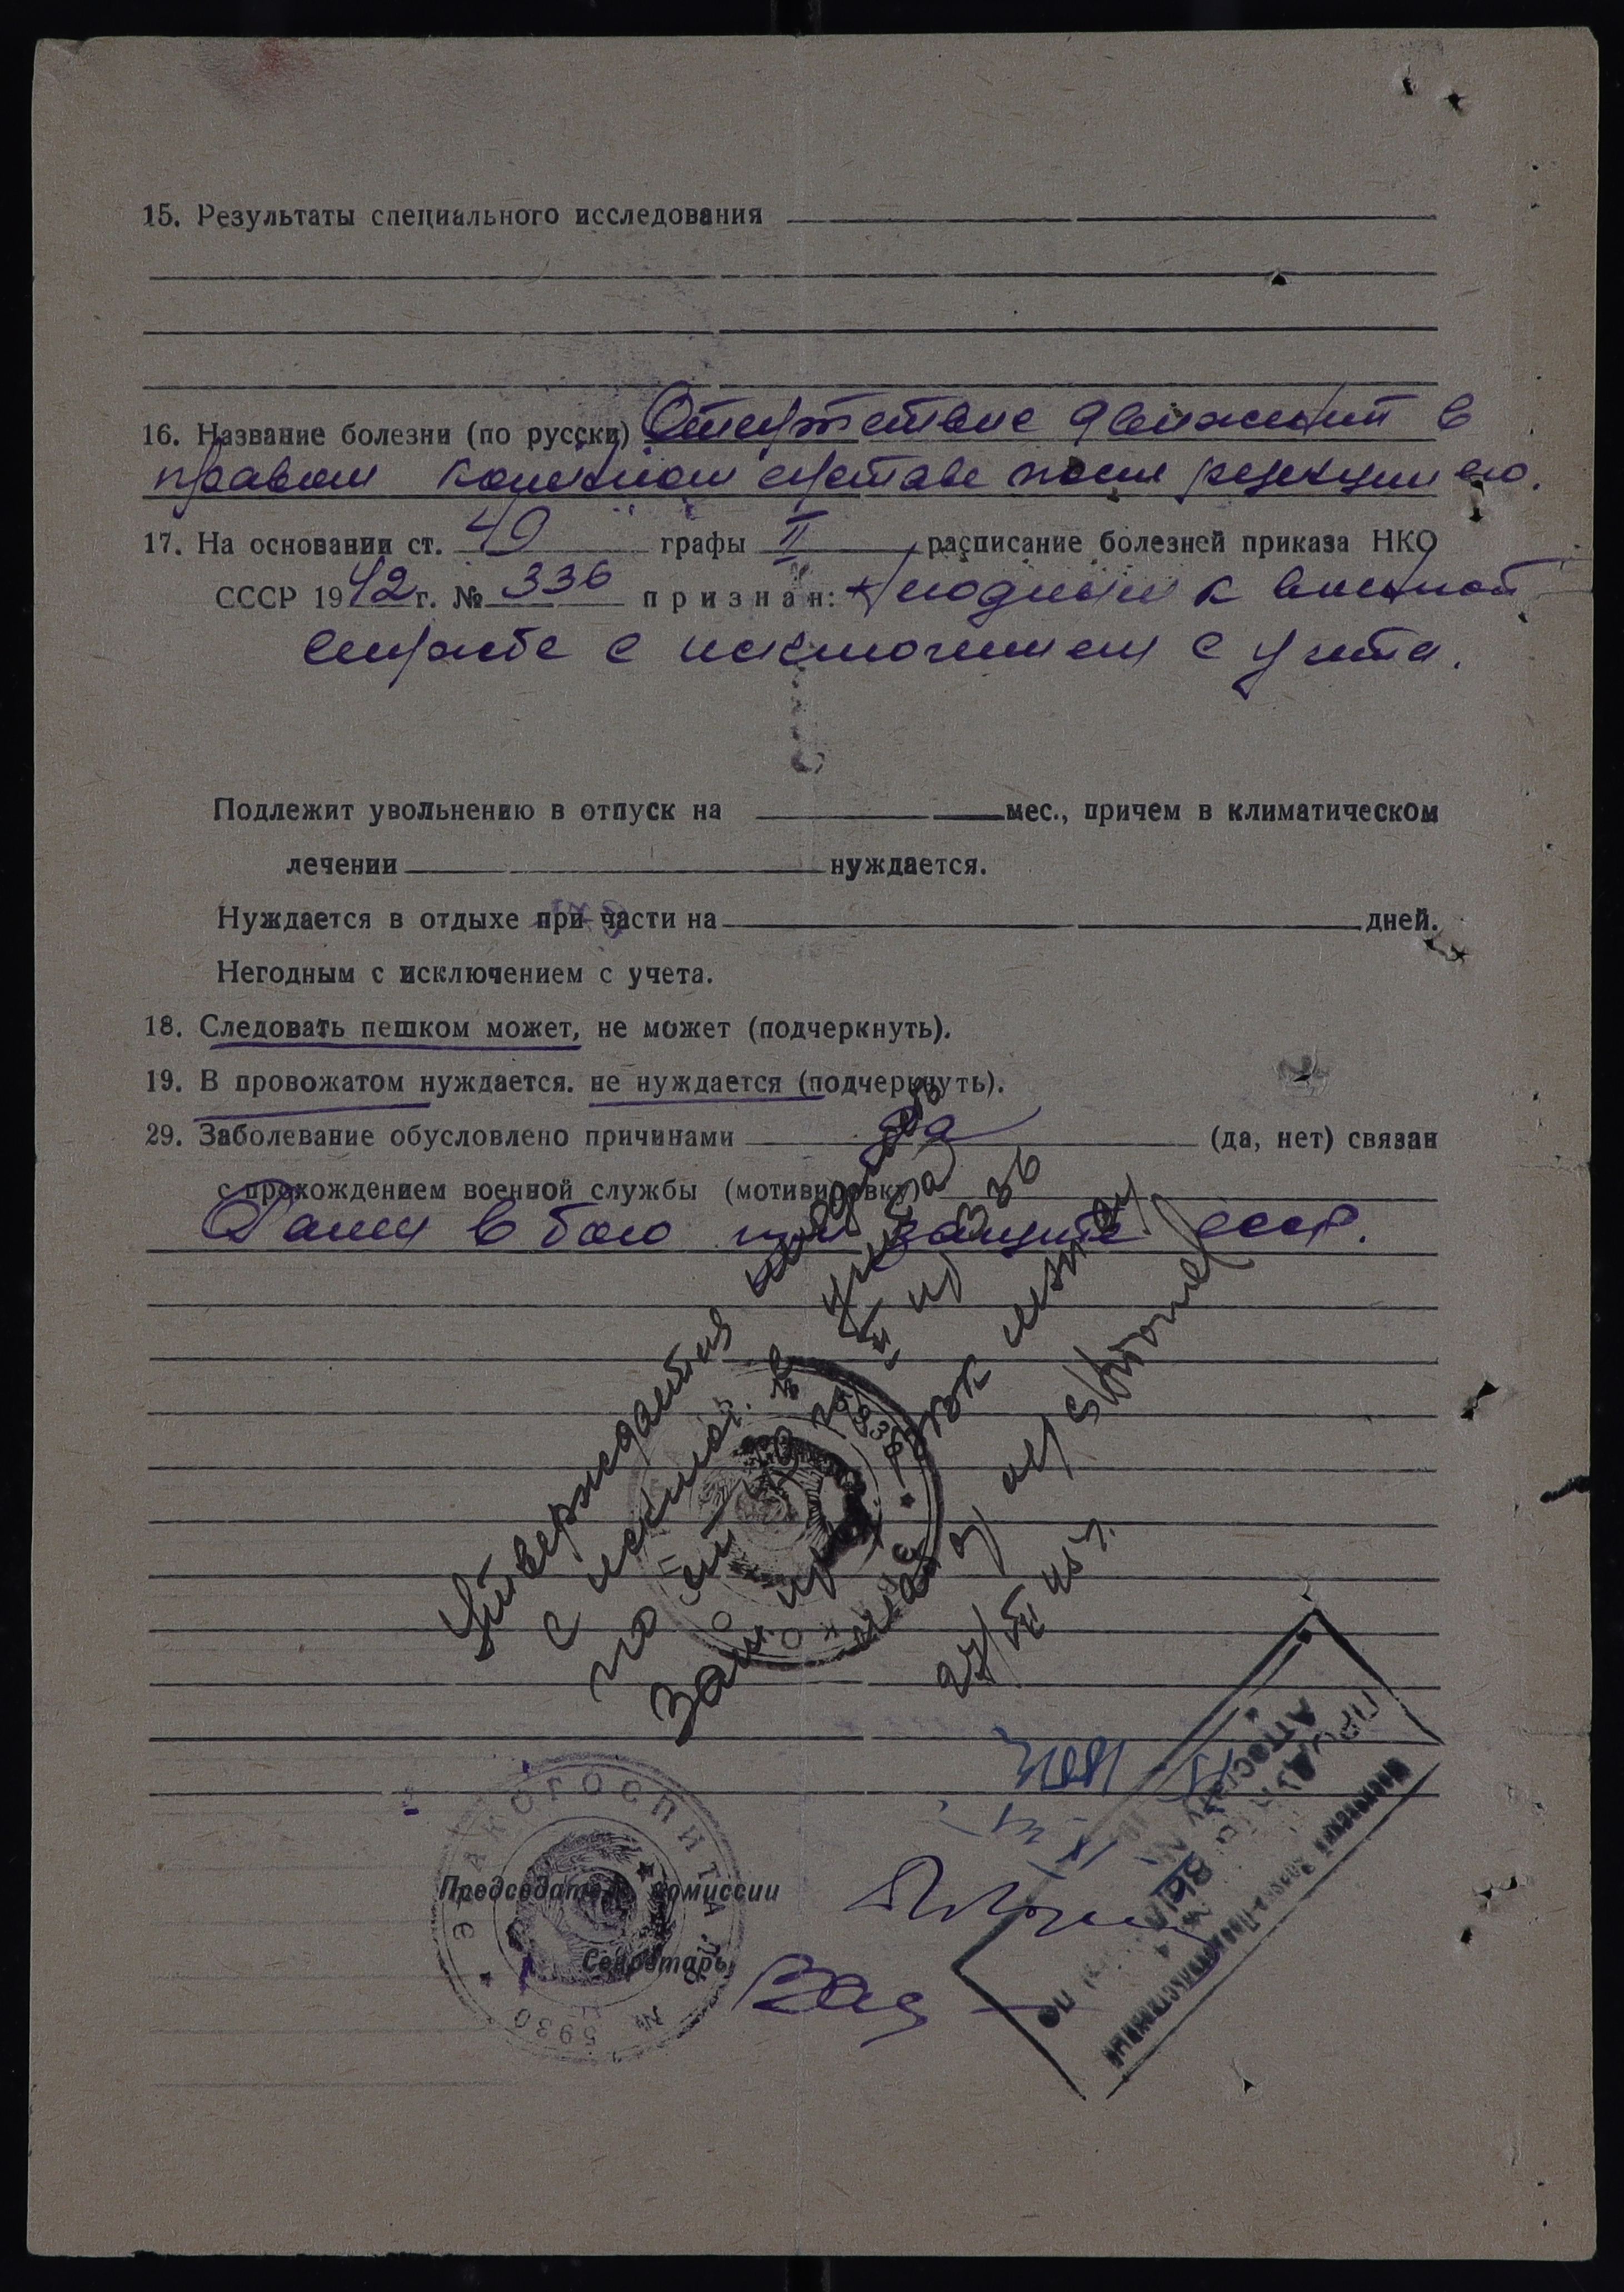 15. Результаты специального исследования
16. Название болезни (по русски) Отсутствие движений в
правом коленном суставе после резекции его.
17. На основании ст. 40 графы II расписание болезней приказа НКО
СССР 1942 г. № 336 признан: Негодным к военной
службе с исключением с учета.
Подлежит увольнению в отпуск на мес., причем в климатическом
лечении нуждается.
Нуждается в отдыхе при части на дней.
Негодным с исключением с учета.
18. Следовать пешком может, не может (подчеркнуть).
19. В провожатом нуждается. не нуждается (подчеркнуть).
29. Заболевание обусловлено причинами да (да, нет) связан
с прохождением военной службы (мотивировку)
Ранен в бою при защите СССР.
Утверждается негодность
с исключ. с учета
по ст. 40 II пр 336
Зам пред
ЭВАКОГОСПИТАЛЬ № 5930
Председатель комиссии
Секретарь